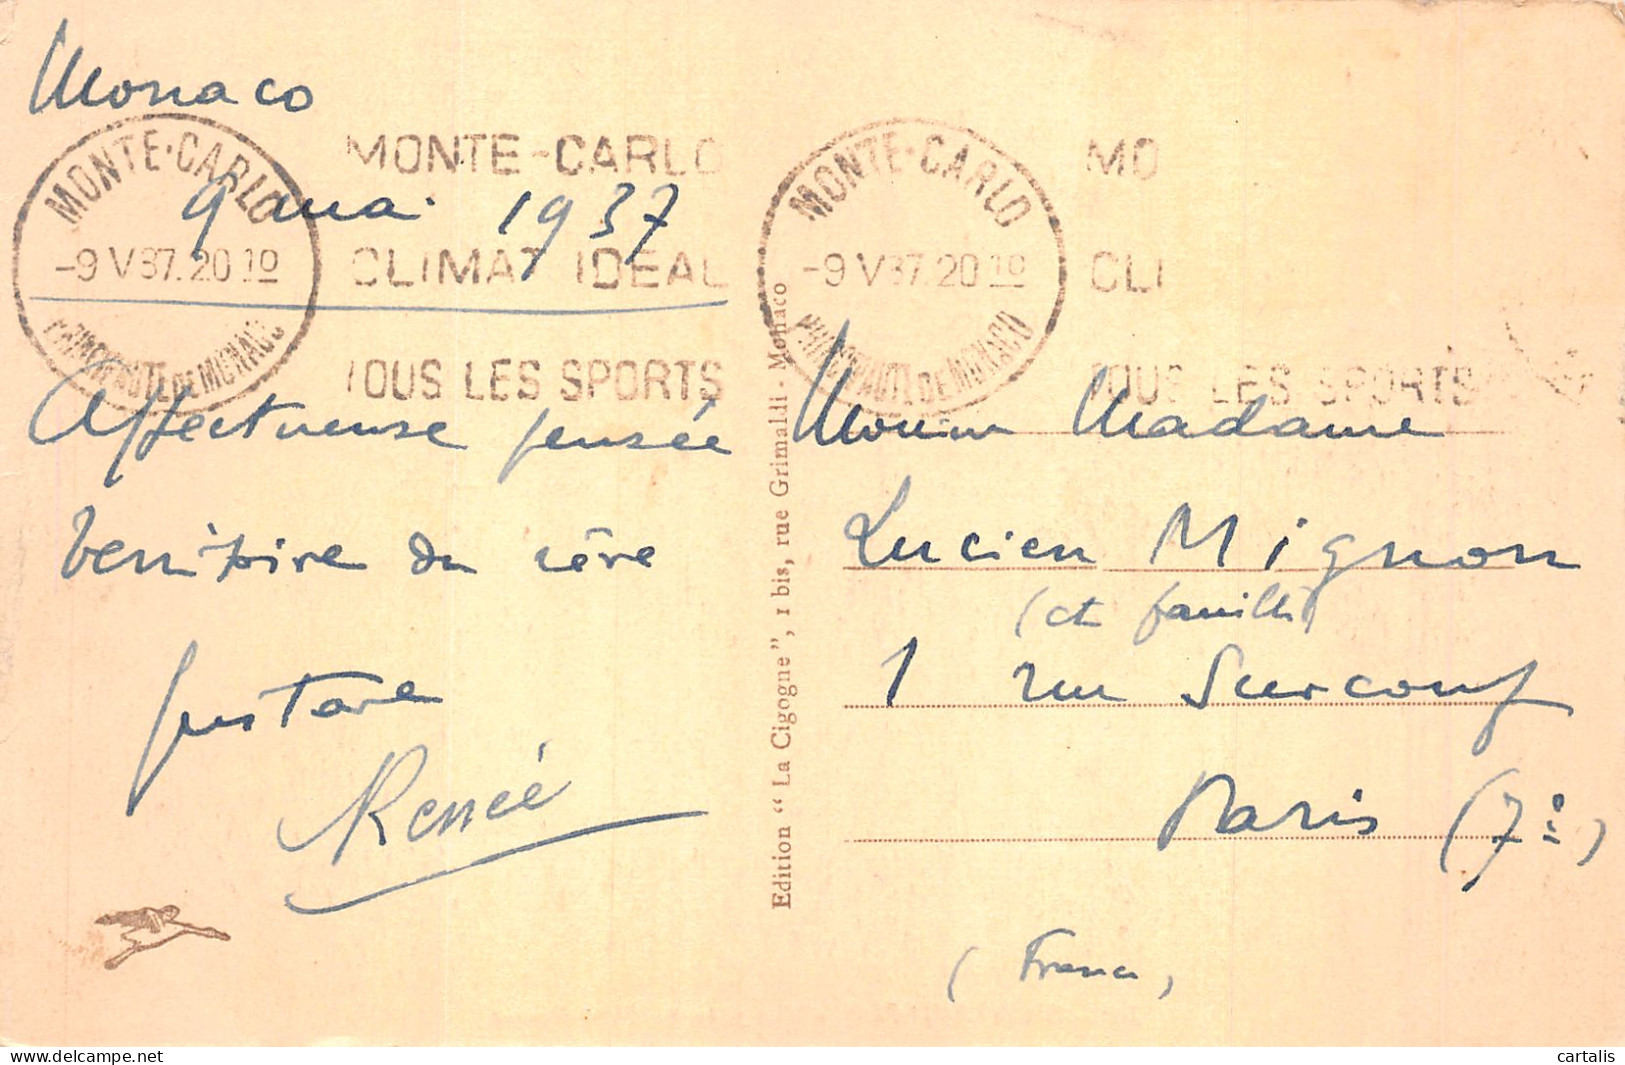 Monaco
9 mai 1937
MONTE-CARLO
-9 V 37. 20 10
PRINCIPAUTE DE MONACO
MONTE-CARLO
CLIMAT IDEAL
TOUS LES SPORTS
Affectueuse pensée
du rêve
Gustave
Renée
Edition "La Cigogne", 1 bis, rue Grimaldi - Monaco
MONTE-CARLO
-9 V 37. 20 10
PRINCIPAUTE DE MONACO
MO
CLI
TOUS LES SPORTS
Madame
Lucien Mignon
(et famille)
1 rue Surcouf
Paris (7e)
(France)
www.delcampe.net
cartalis